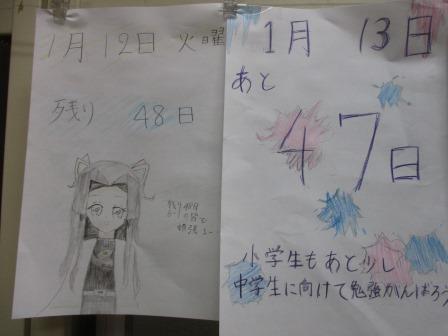 1月12日 火曜
残り 48日
残り48日
頑張ろー
1月 13日
あと
47日
小学生もあと少し
中学生に向けて勉強がんばろう